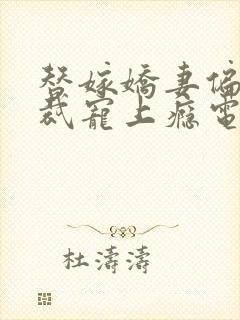 替嫁嬌妻偏
裁寵上癮電
杜濤濤